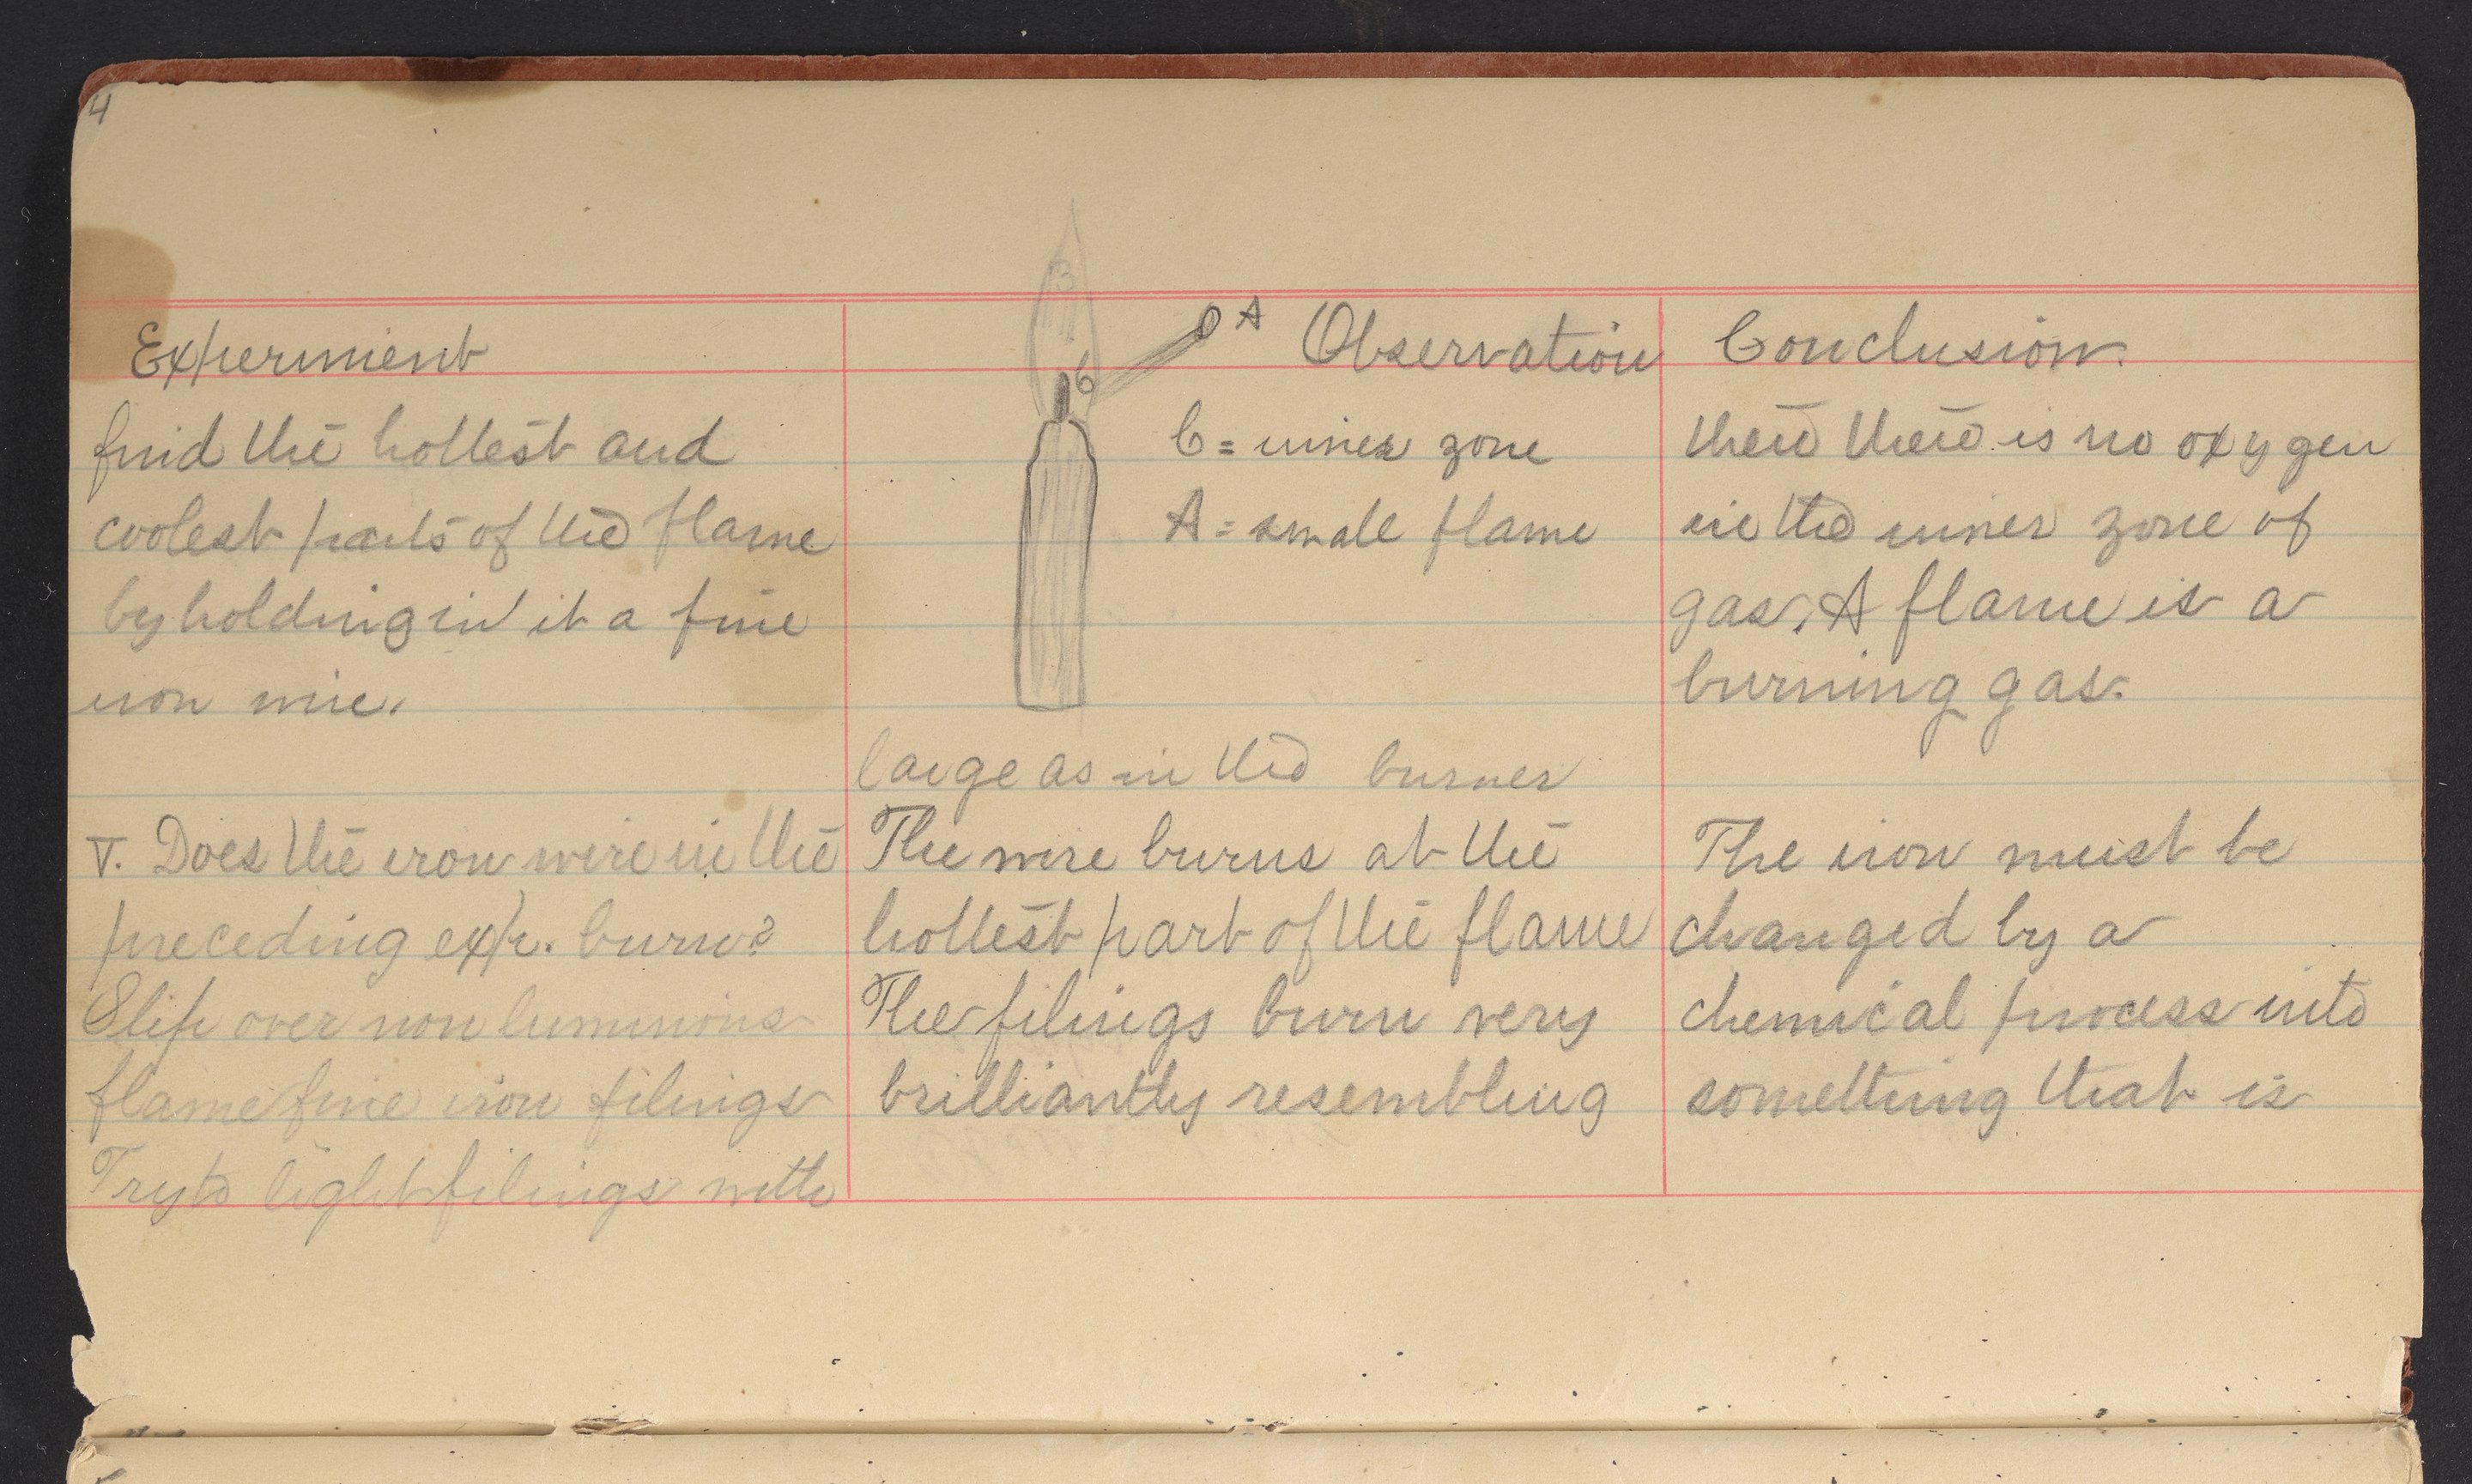 4
Experiment
find the hottest and
coolest parts of the flame
by holding in it a fine
iron wire.
V. Does the iron wire in the
preceding exp. burn?
Slip over non luminous
flame fine iron filings
Try to light filings with
B
A
C
Observation
C = inner zone
A = small flame
large as in the burner
The wire burns at the
hottest part of the flame
The filings burn very
brilliantly resembling
Conclusion.
there there is no oxygen
in the inner zone of
gas. A flame is a
burning gas.
The iron must be
changed by a
chemical process into
something that is